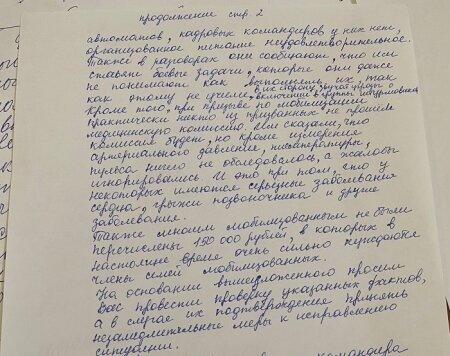 продолжение стр. 2
автоматов, кадровых командиров у них нет,
организованное питание неудовлетворительное.
Также в разговорах они сообщают, что им
ставят боевые задачи, которые они даже
не понимают как выполнить их, так
как этому не учили, в их сторону звучат угрозы о
включении в группы штурмовиков
Кроме того, при призыве по мобилизации
практически никто из призванных не прошел
медицинскую комиссию. Им сказали, что
комиссия будет, но кроме измерения
артериального давления, температуры,
пульса ничего не обследовалось, а жалобы
игнорировались. И это при том, что у
некоторых имеются серьезные заболевания
сердца, грыжи позвоночника и другие
заболевания.
Также многим мобилизованным не были
перечислены 150 000 рублей, в которых в
настоящее время очень сильно нуждаются
члены семей мобилизованных.
На основании вышеизложенного просим
Вас провести проверку указанных фактов,
а в случае их подтверждения принять
незамедлительные меры к исправлению
ситуации.
командира